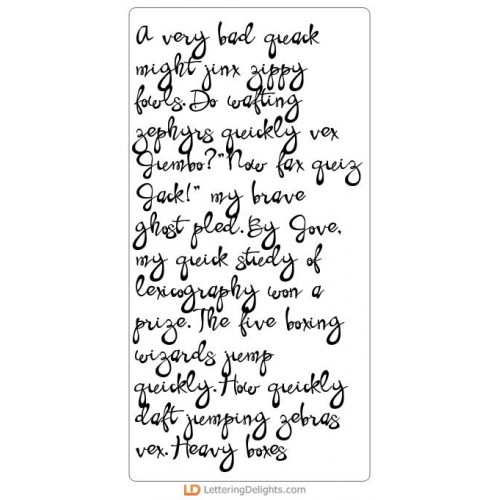 A very bad quack
might jinx zippy
fowls. Do wafting
zephyrs quickly vex
Jumbo? "Now fax quiz
Jack!" my brave
ghost pled. By Jove,
my quick study of
lexicography won a
prize. The five boxing
wizards jump
quickly. How quickly
daft jumping zebras
vex. Heavy boxes
LD LetteringDelights.com